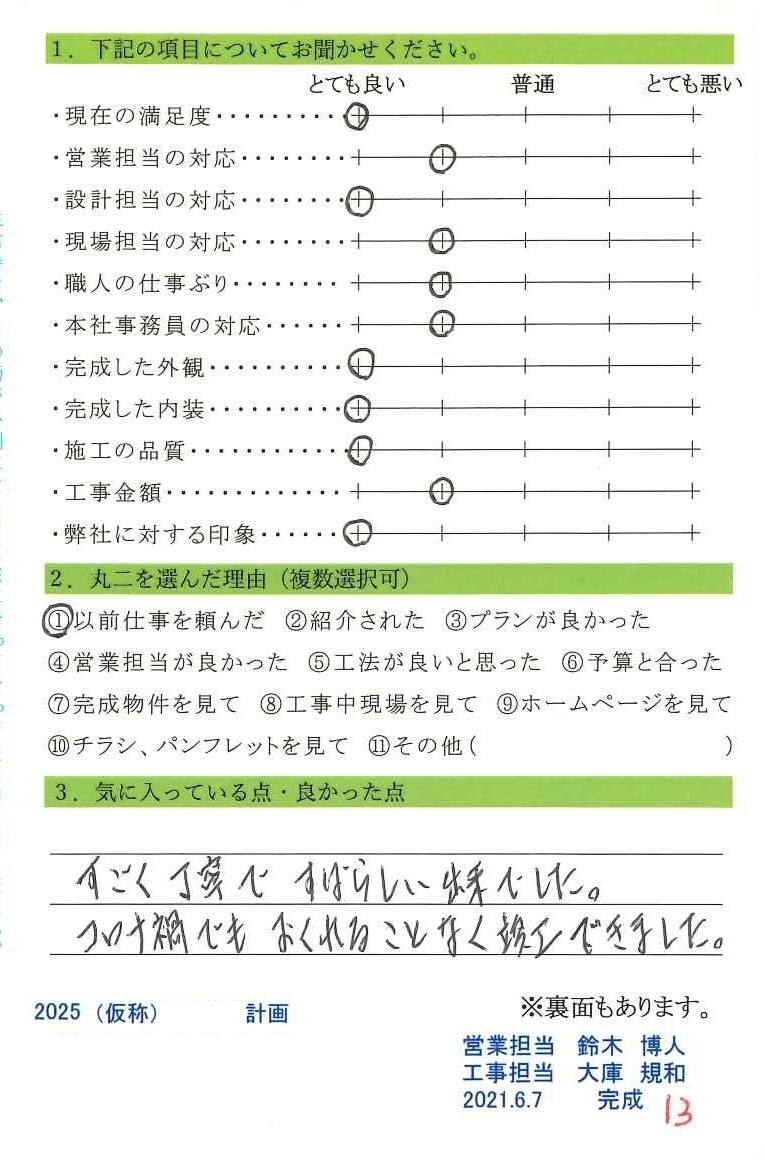 1．下記の項目についてお聞かせください。
とても良い 普通 とても悪い
・現在の満足度・・・・・・・・・
・営業担当の対応・・・・・・・・
・設計担当の対応・・・・・・・・
・現場担当の対応・・・・・・・・
・職人の仕事ぶり・・・・・・・・
・本社事務員の対応・・・・・・
・完成した外観・・・・・・・・・・
・完成した内装・・・・・・・・・・
・施工の品質・・・・・・・・・・・
・工事金額・・・・・・・・・・・・
・弊社に対する印象・・・・・・
2．丸二を選んだ理由（複数選択可）
①以前仕事を頼んだ ②紹介された ③プランが良かった
④営業担当が良かった ⑤工法が良いと思った ⑥予算と合った
⑦完成物件を見て ⑧工事中現場を見て ⑨ホームページを見て
⑩チラシ、パンフレットを見て ⑪その他（ ）
3．気に入っている点・良かった点
すごく丁寧で すばらしい出来でした。
コロナ禍でも おくれることなく竣工できました。
※裏面もあります。
2025（仮称） 計画
営業担当 鈴木 博人
工事担当 大庫 規和
2021.6.7 完成
13